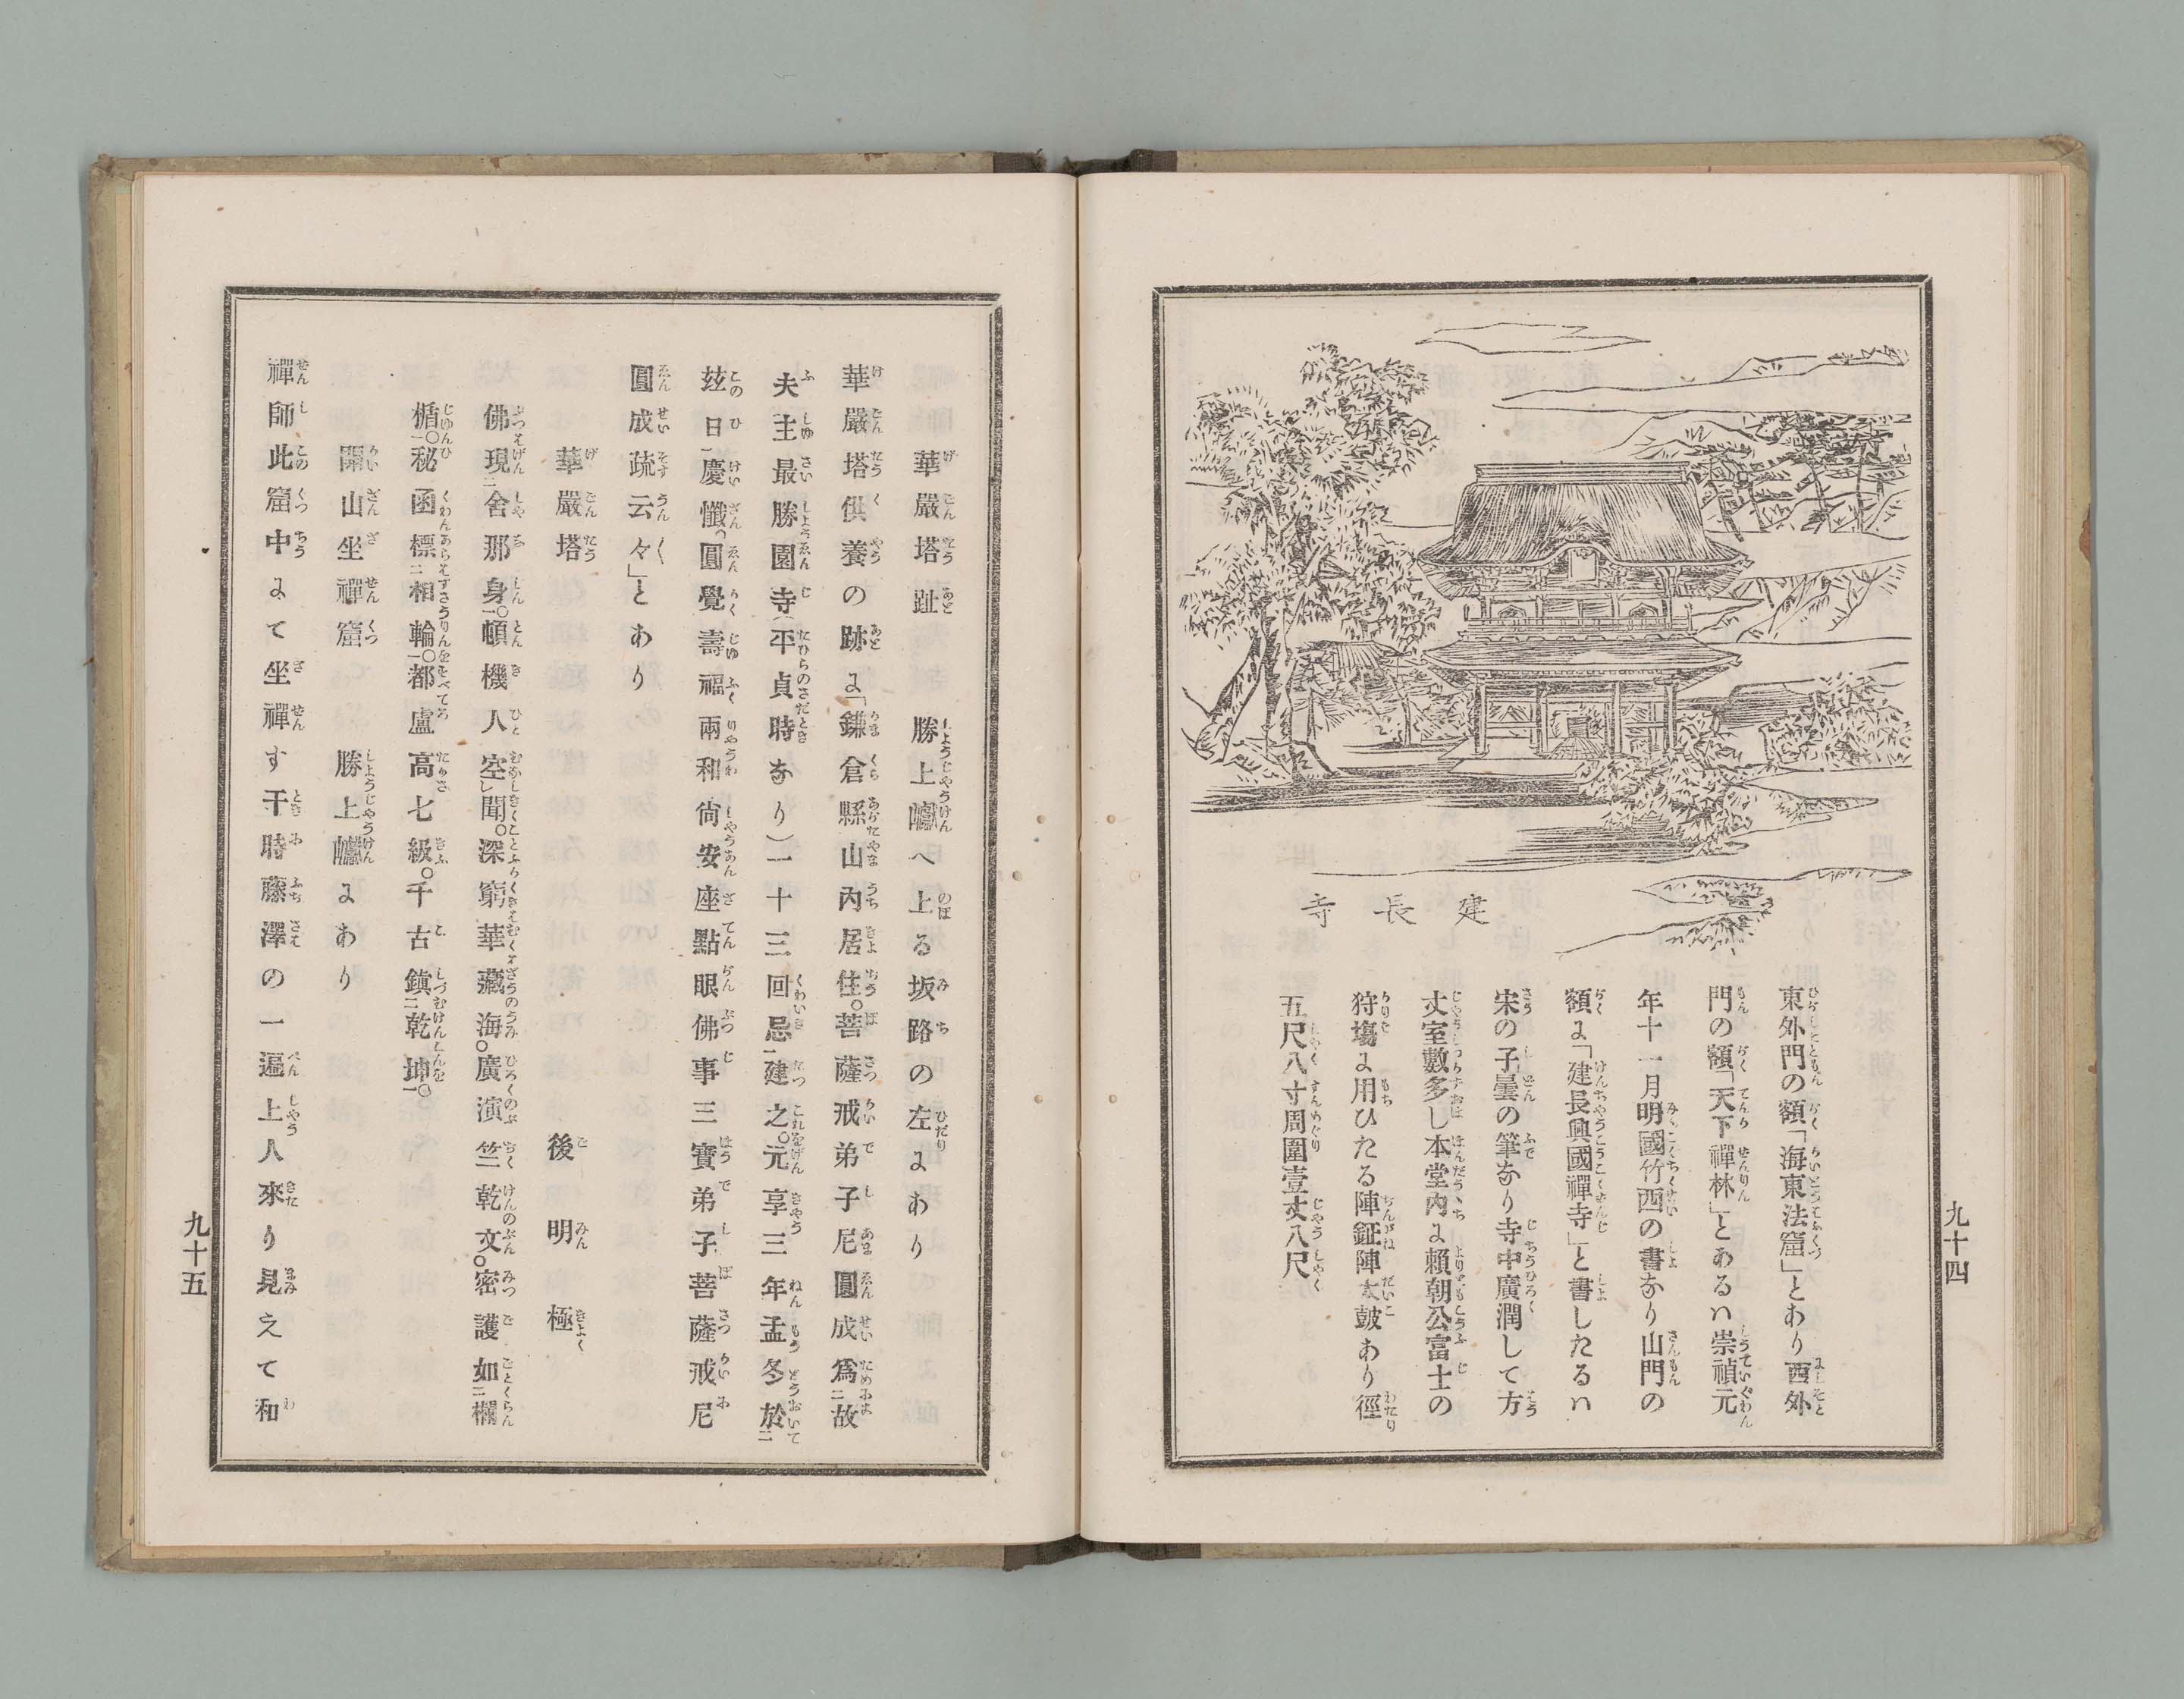 建長寺
東外門の額「海東法窟」とあり西外
門の額「天下禪林」とあるハ崇禎元
年十一月明國竹西の書なり山門の
額に「建長興國禪寺」と書したるハ
宋の子曇の筆なり寺中廣濶して方
丈室數多し本堂内に賴朝公富士の
狩塲に用ひたる陣鉦陣太皷あり徑
五尺八寸周圍壹丈八尺
九十四
華嚴塔趾　勝上巘へ上る坂路の左にあり
華嚴塔供養の跡に「鎌倉縣山內居住。菩薩戒弟子尼圓成爲二故
夫主最勝園寺(平貞時なり)一十三回忌一建之。元享三年孟冬於二
玆日一慶懺。圓覺壽福兩和尙安座點眼佛事三寶弟子菩薩戒尼
圓成疏云々」とあり
華嚴塔　後明極
佛現二舍那身一。頓機人空レ聞。深窮華藏海。廣演竺乾文。密護如二欄
楯一。秘函標二相輪一。都盧高七級。千古鎭二乾坤一。
開山坐禪窟　勝上巘にあり
禪師此窟中にて坐禪す于時藤澤の一遍上人來り見えて和
九十五